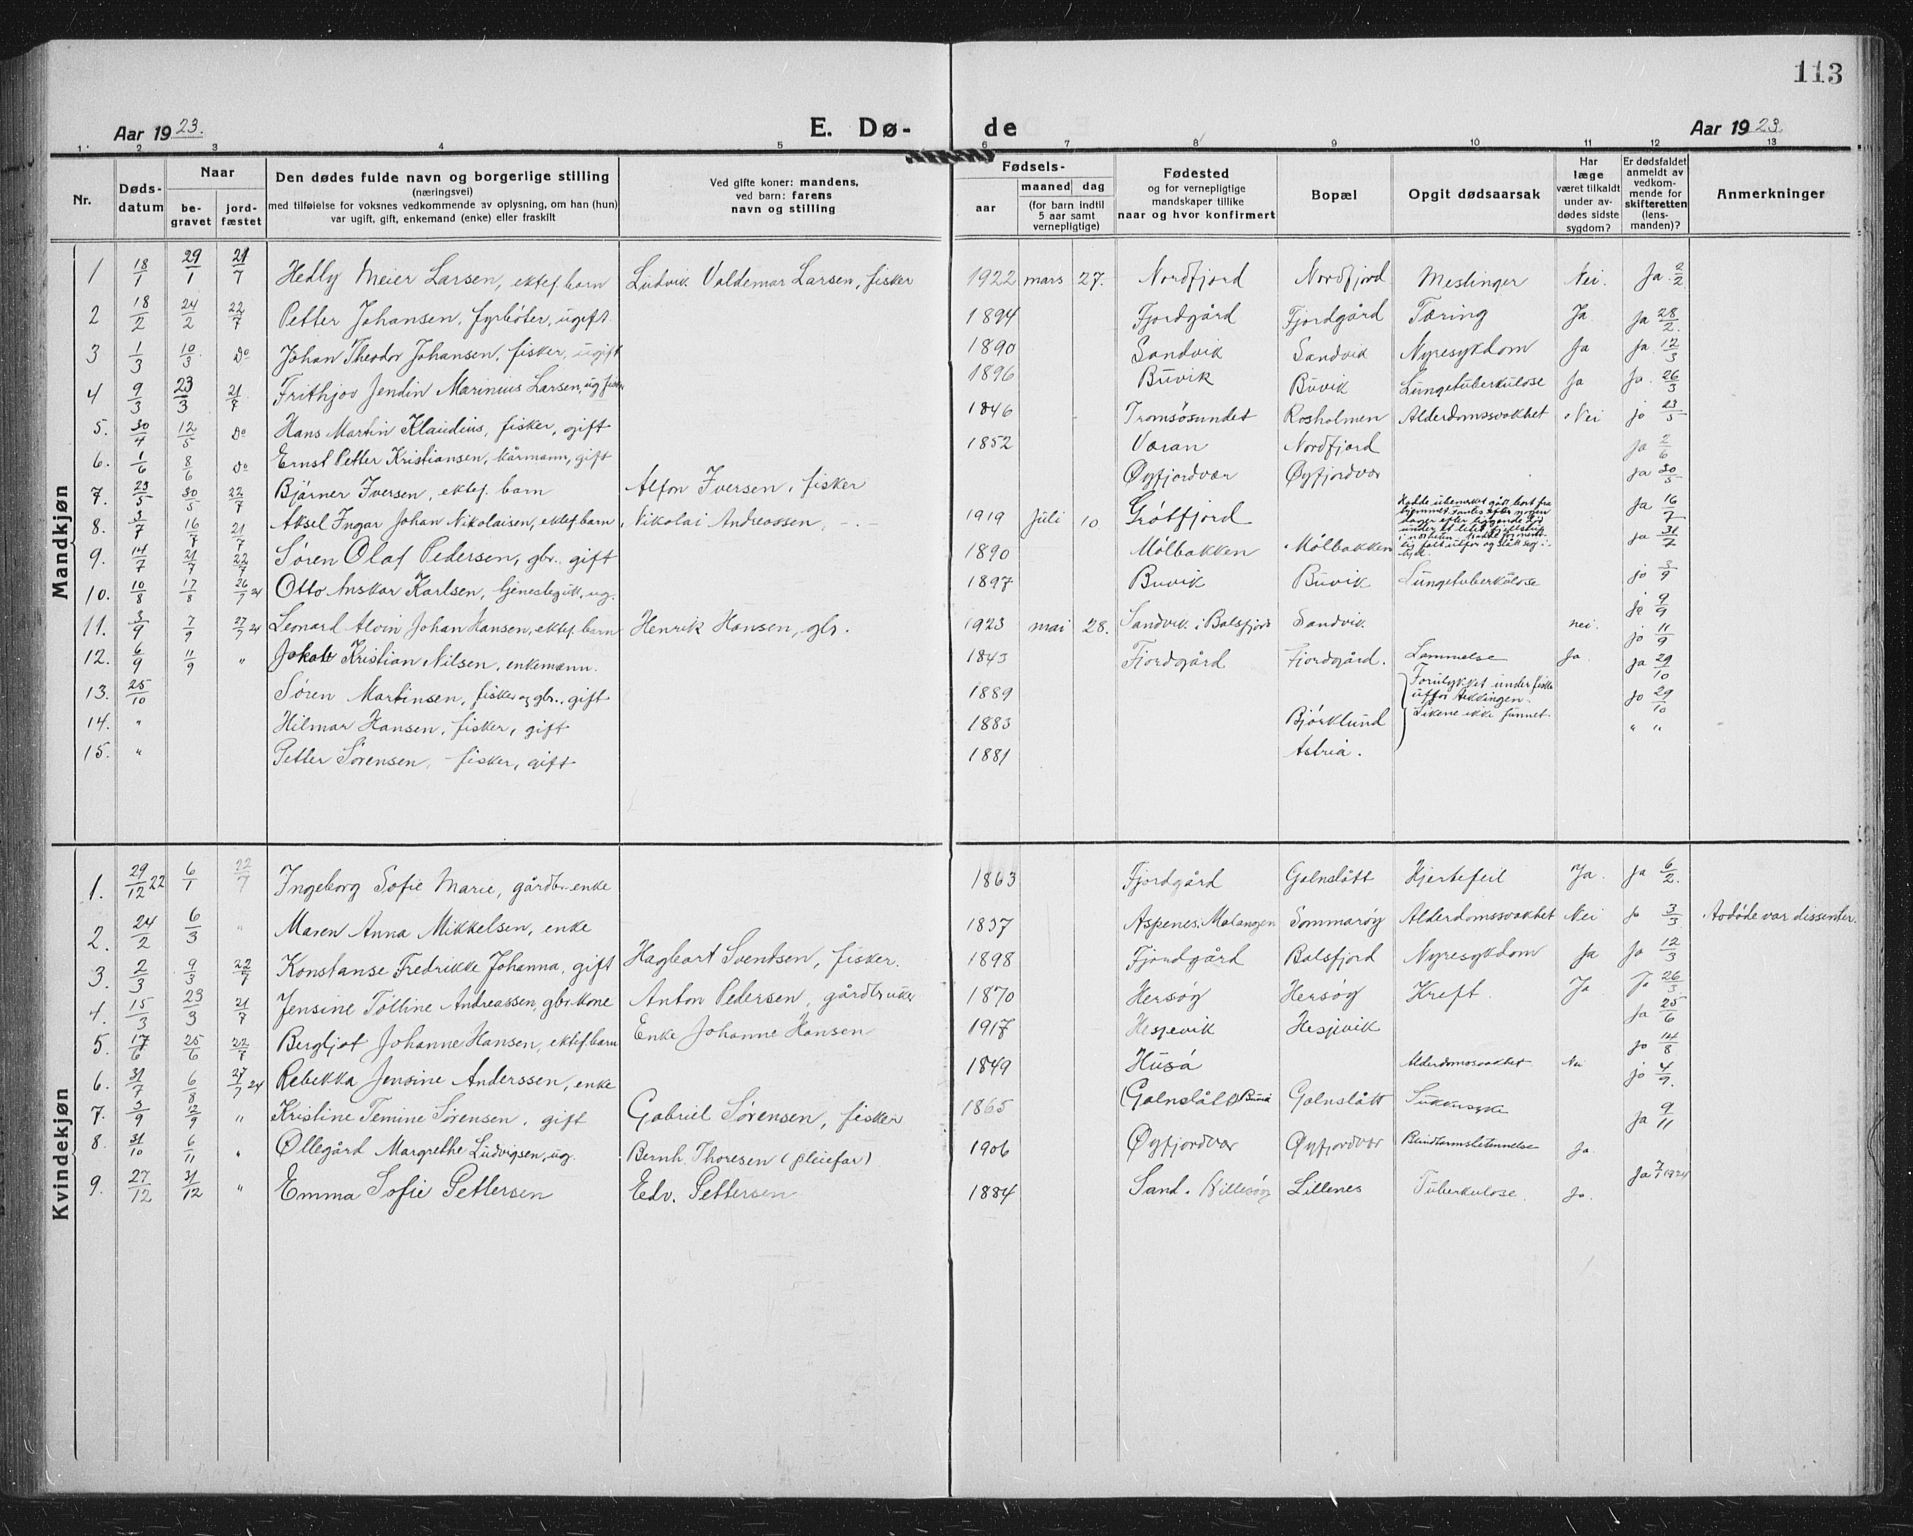 113
Aar 1923. E. Dø- de Aar 1923.
1 2 3 4 5 6 7 8 9 10 11 12 13
Nr. Døds-datum Naar be-gravet jord-fæstet Den dødes fulde navn og borgerlige stilling (næringsvei) med tilføielse for voksnes vedkommende av oplysning, om han (hun) var ugift, gift, enkemand (enke) eller fraskilt Ved gifte koner: mandens, ved barn: farens navn og stilling Fødsels- aar maaned dag (for barn indtil 5 aar samt vernepligtige) Fødested og for vernepligtige mandskaper tillike naar og hvor konfirmert Bopæl Opgit dødsaarsak Har læge været tilkaldt under av-dødes sidste sygdom? Er dødsfaldet anmeldt av vedkom-mende for skifteretten (lens-manden)? Anmerkninger
Mandkjøn
1 18/1 29/1 21/7 Hedly Meier Larsen, ektef. barn Ludvik Valdemar Larsen, fisker 1922 mars 27. Nordfjord Nordfjord Meslinger Nei. Ja 2/2
2 18/2 24/2 22/7 Petter Johansen, fyrbøter, ugift 1894 Fjordgård Fjordgård Tæring Ja Ja 28/2.
3 1/3 10/3 Do Johan Theodor Johansen, fisker, ugift 1890 Sandvik Sandvik Nyresykdom Ja Ja. 12/3
4 9/3 23/3 21/7 Frithjov Jendin Marinius Larsen, ug. fisker 1896 Buvik Buvik Lungetuberkulose Ja Ja. 26/3
5. 30/4 12/5 Do Hans Martin Klaudius, fisker, gift 1846 Tromsøsundet Rosholmen Alderdomssvakhet Nei jo 23/5
6. 1/6 8/6 Do Ernst Petter Kristiansen, kårmann, gift 1852 Væran Nordfjord Ja 2/6
7. 23/5 30/5 22/7 Bjørner Iversen, ektef. barn Alfon Iversen, fisker Øyfjordvær Øyfjordvær Ja 30/5
8. 3/7 16/7 21/7 Aksel Ingar Johan Nikolaisen, ektef. barn Nikolai Andreassen, -"- 1919 Juli 10 Grøtfjord Hadde ubemerket gått bort fra hjemmet. Ja 16/7
9. 14/7 21/7 22/7 Søren Olaf Pedersen, gbr. gift 1890 Mølbakken Mølbakken Ja 31/7
10. 10/8 17/8 26/7 24 Otto Anskar Karlsen, tjenestegutt, ug. 1897 Buvik Buvik Lungetuberkulose jo 3/9
11. 3/9 7/9 27/7 24 Leonard Alvin Johan Hansen, ektef. barn Henrik Hansen, gbr. 1923 mai 28. Sandvik i Balsfjord Sandvik nei. ja 9/9
12. 6/9 11/9 " Jakob Kristian Nilsen, enkemann. 1843 Fjordgård Fjordgård. Lammelse Ja. jo 11/9
13. 25/10 Søren Martinsen, fisker og gbr., gift 1889 Forulykket under fiske utfor Likene ikke funnet. Ja 29/10
14. " Hilmar Hansen, fisker, gift 1883 Bjørklund jo 29/10
15. " Petter Sørensen, fisker, gift 1881 Astria. " "
Kvindekjøn
1. 29/12 22 6/1 22/7 Ingeborg Sofie Marie, gårdbr. enke 1863 Fjordgård Galnslått Hjertefeil Ja. Ja 6/2.
2. 24/2 6/3 " Maren Anna Mikkelsen, enke 1837 Aspenes, Malangen Sommarøy Alderdomssvakhet Nei Jo 3/3 Avdøde var dissenter.
3. 2/3 9/3 22/7 Konstanse Fredrikke Johanna, gift Hagbart Sventsen, fisker. 1898 Fjordgård Balsfjord Nyresykdom Ja Ja 12/3
4. 15/3 23/3 21/7 Jensine Tolline Andreassen, gbr. kone Anton Pedersen, gårdbruker 1870 Hersøy Hersøy Kreft. Ja Ja 26/3
5. 17/6 25/6 22/7 Bergljot Johanne Hansen, ektef. barn Enke Johanne Hansen 1917 Hesjevik Hesjevik Ja 25/6
6. 31/7 6/8 27/7 24 Rebekka Jensine Anderssen, enke 1849 Husø Alderdomssvakhet Nei Jo 14/8
7. 3/9 12/9 " Kristine Temine Sørensen, gift Gabriel Sørensen, fisker 1865 Galnslått Galnslått Sukkersyke jo 4/9.
8. 31/10 6/11 " Øllegård Margrethe Ludvigsen, ug. Bernh. Thoresen (pleiefar) 1906 Øyfjordvær Øyfjordvær Blindtarmsbetennelse Ja. Ja 9/11
9. 27/12 31/12 " Emma Sofie Pettersen Edv. Pettersen 1884 Sand. Hillesøy Lillenes Tuberkulose. Jo. Ja 7/1 1924